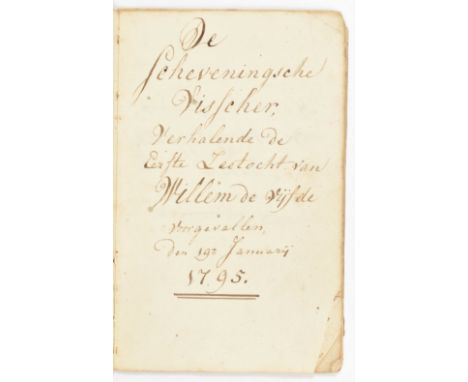 De
Scheveningsche
Visscher,
Verhalende de
Eerste Zestocht van
Willem de Vijfde
Voorgevallen,
Den 19e Januarij
1795.